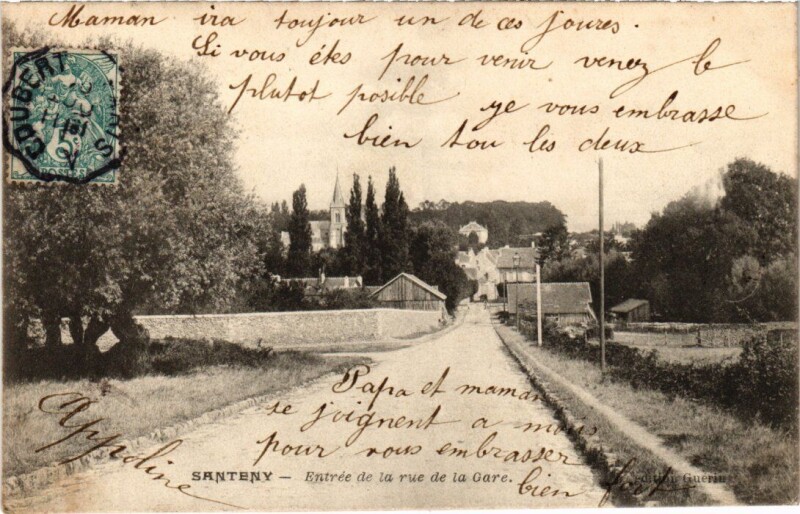 Maman ira toujour un de ces joures.
Si vous étes pour venir venez le
plutot posible ye vous embrasse
bien tou les deux
COUBERT
5c
POSTES
Papa et maman
se joignent a nous
pour vous embrasser
bien
Appoline
SANTENY — Entrée de la rue de la Gare.
Edition Guerin